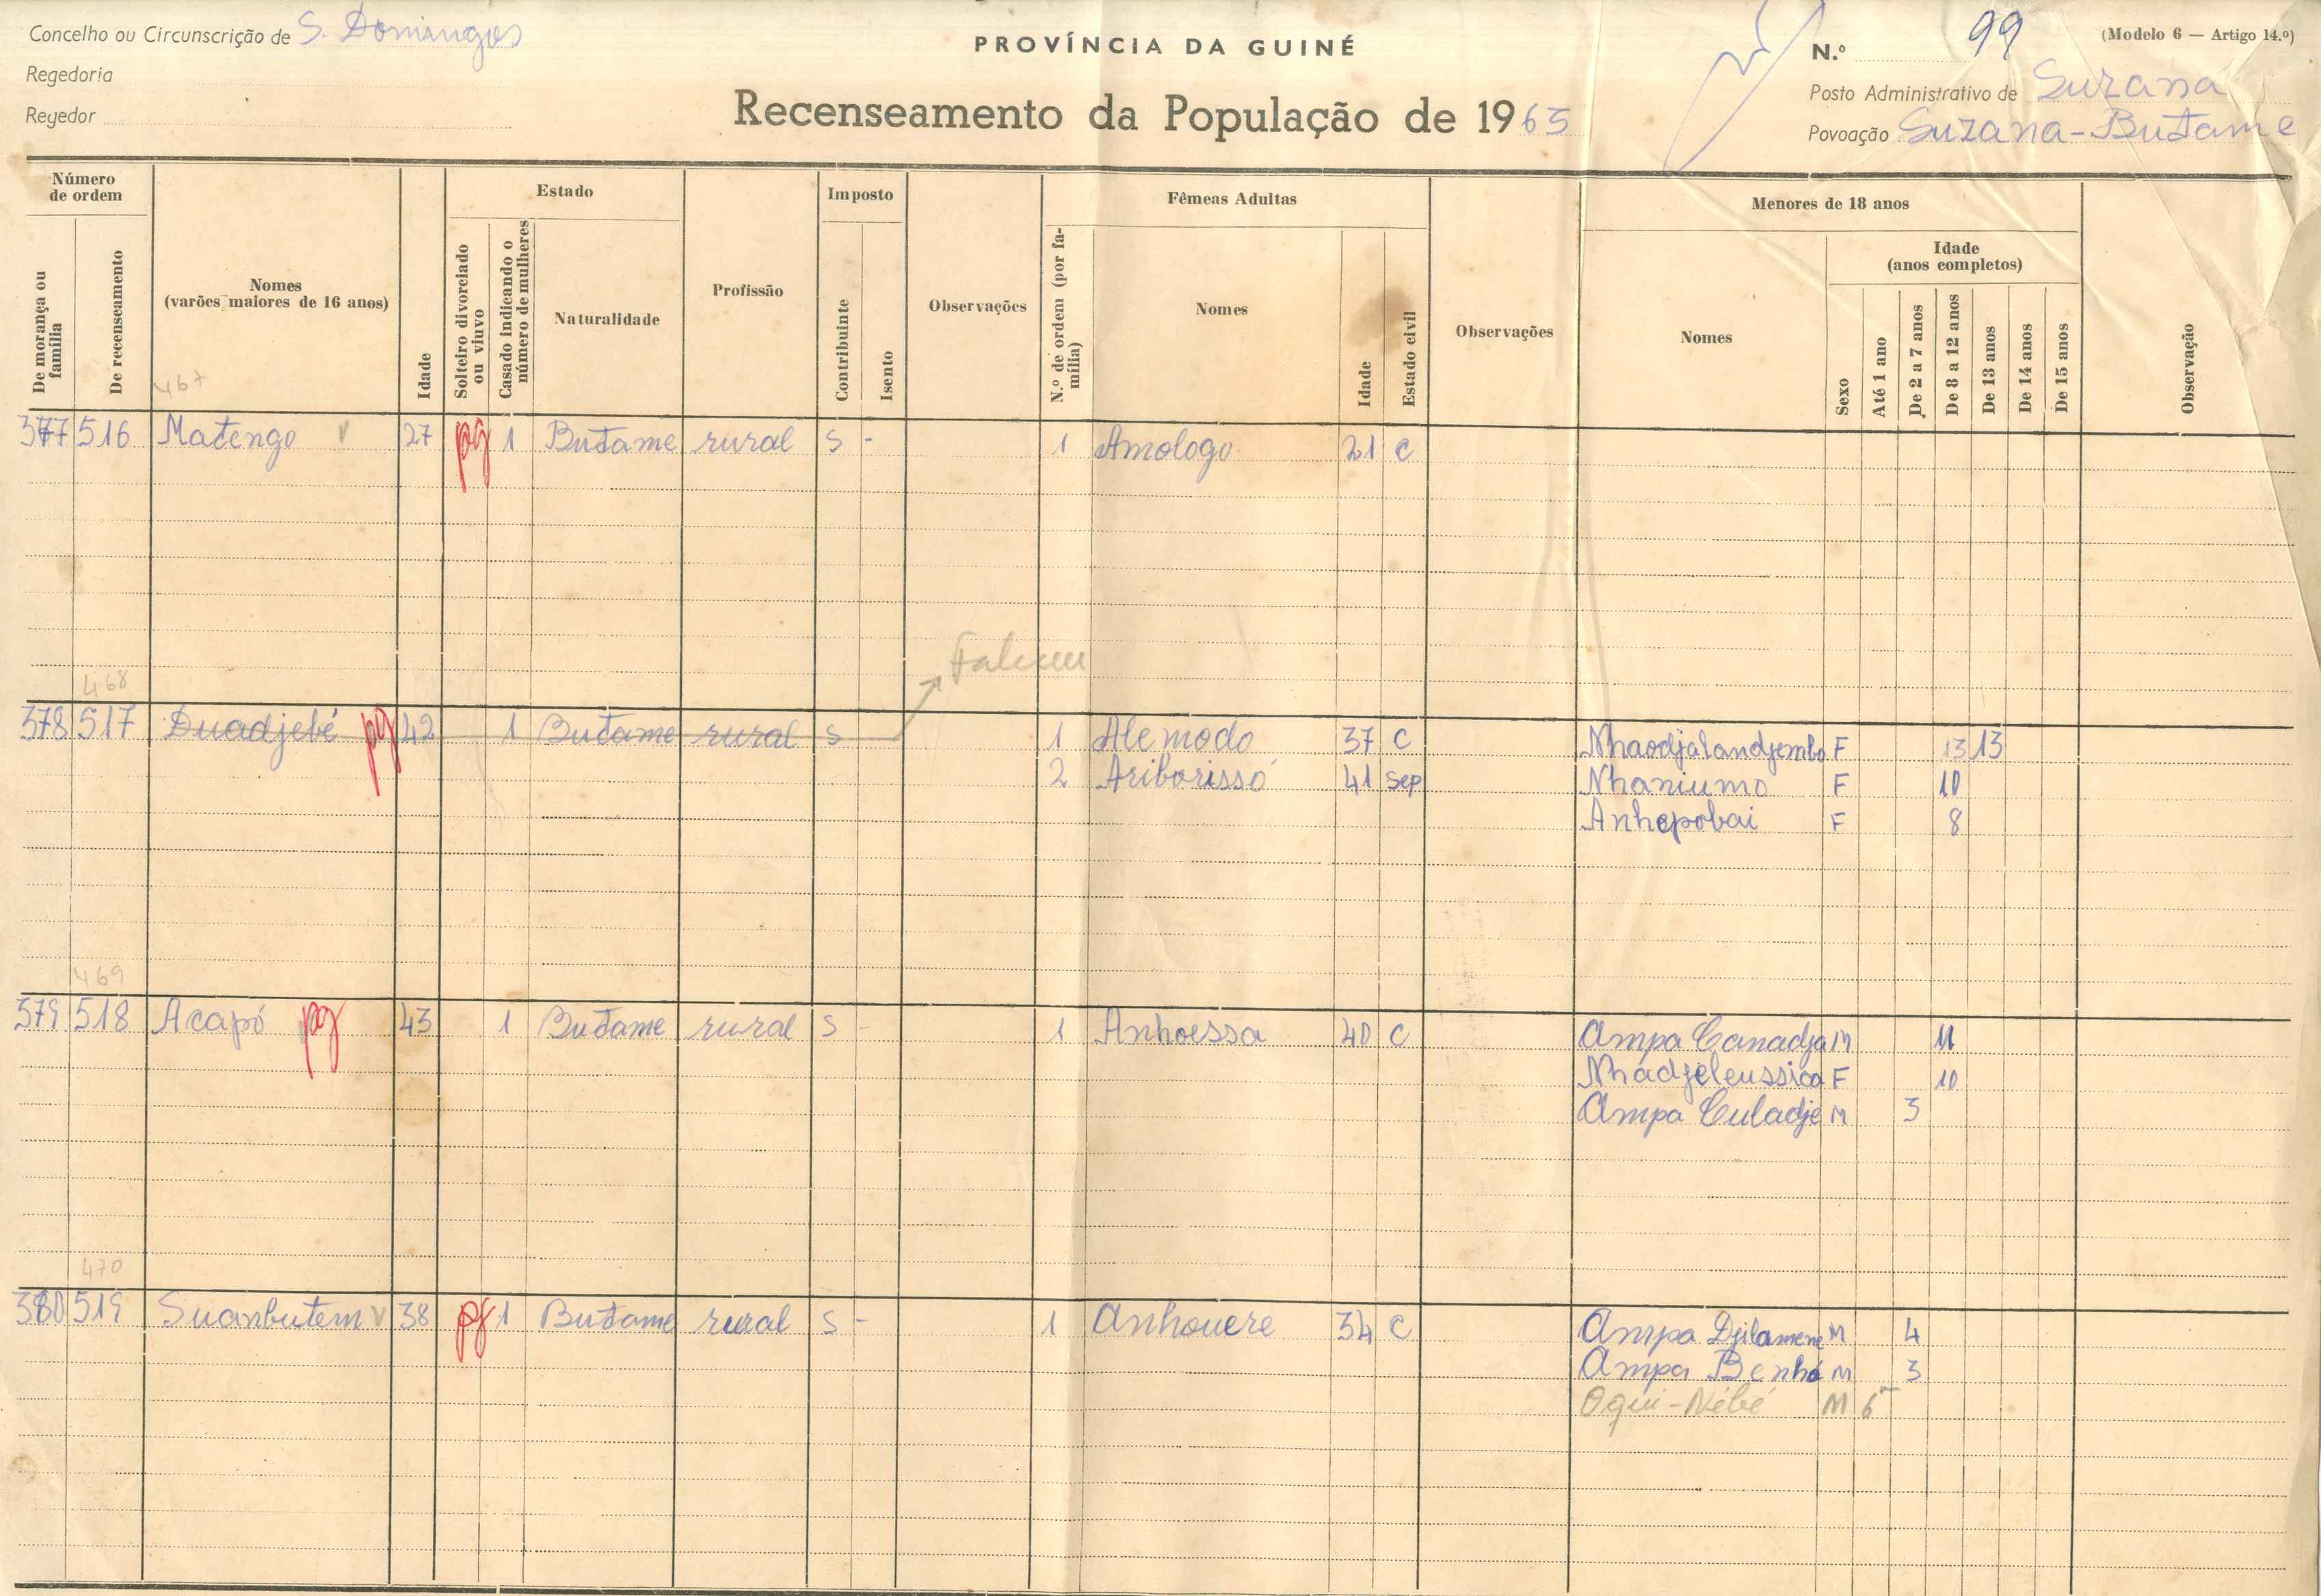 Concelho ou Circunscrição de S. Domingos
PROVÍNCIA DA GUINÉ
N.º 99
(Modelo 6 — Artigo 14.º)
Regedoria
Posto Administrativo de Suzana
Regedor
Recenseamento da População de 1963
Povoação Suzana-Butame
Número de ordem
De morança ou família
De recenseamento
Nomes (varões maiores de 16 anos)
Idade
Estado
Solteiro divorciado ou viuvo
Casado indicando o número de mulheres
Naturalidade
Profissão
Imposto
Contribuinte
Isento
Observações
Fêmeas Adultas
N.º de ordem (por família)
Nomes
Idade
Estado civil
Observações
Menores de 18 anos
Nomes
Sexo
Idade (anos completos)
Até 1 ano
De 2 a 7 anos
De 8 a 12 anos
De 13 anos
De 14 anos
De 15 anos
Observação
467
377 516 Matengo 27 pg 1 Butame rural S - 1 Amologo 21 C
Falceu
468
378 517 Duadjebé pg 42 1 Butame rural S 1 Alemodo 37 C Nhaodjalandjembo F 13 13
2 Ariborissó 41 Sep Nhaniumo F 10
Anhepobai F 8
469
379 518 Acapó pg 43 1 Butame rural S - 1 Anhoessa 40 C Ampa Canadja M 11
Nhadjeleussica F 10
Ampa Culadje M 3
470
380 519 Suanbutem 38 pg 1 Butame rural S - 1 Anhouere 34 C Ampa Djilamene M 4
Ampa Benhá M 3
Oqui-Nébé M 6